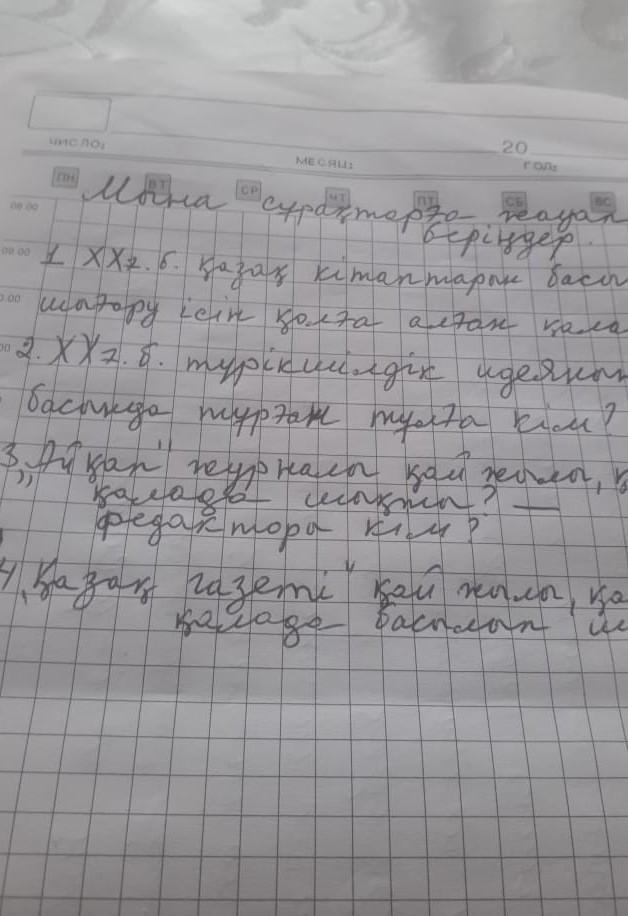 ЧИСЛО:
МЕСЯЦ:
20
ГОД:
ПН ВТ СР ЧТ ПТ СБ ВС
Мына сұрақтарға жауап
беріңдер.
08.00
09.00
1 ХХғ.б. қазақ кітаптарын басы
шығару ісін қолға алған қала
2. ХХғ.б. түрікшілдік идеяның
басында тұрған тұлға кім?
3. „Айқап" журналы қай жылы, қ
қалада шықты? —
редакторы кім?
4. Қазақ газеті" қай жылы, қа
қалада басылып ш